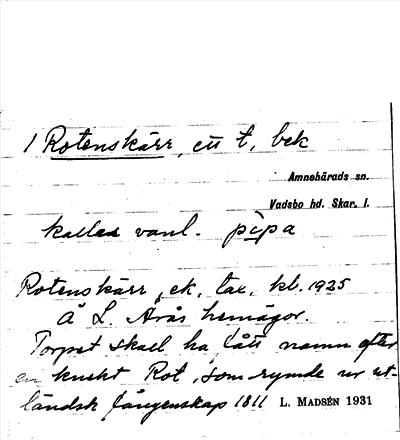 1 Rotenskärr, ett t, bek
Amnehärads sn.
Vadsbo hd. Skar. l.
kallas vanl. pìpa
Rotenskärr, ek, tax, kl. 1925
Å L. Årås hemägor.
Torpet skall ha fått namn efter
en knekt Rot, som rymde ur ut-
ländsk fångenskap 1811 L. MADSÉN 1931